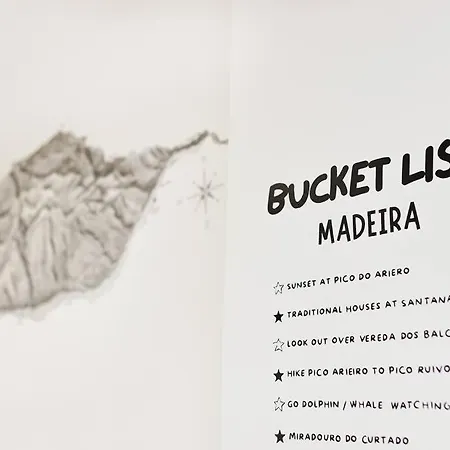 BUCKET LIS
MADEIRA
☆ SUNSET AT PICO DO ARIERO
★ TRADITIONAL HOUSES AT SANTANA
☆ LOOK OUT OVER VEREDA DOS BALC
★ HIKE PICO ARIEIRO TO PICO RUIVO
☆ GO DOLPHIN / WHALE WATCHING
★ MIRADOURO DO CURTADO